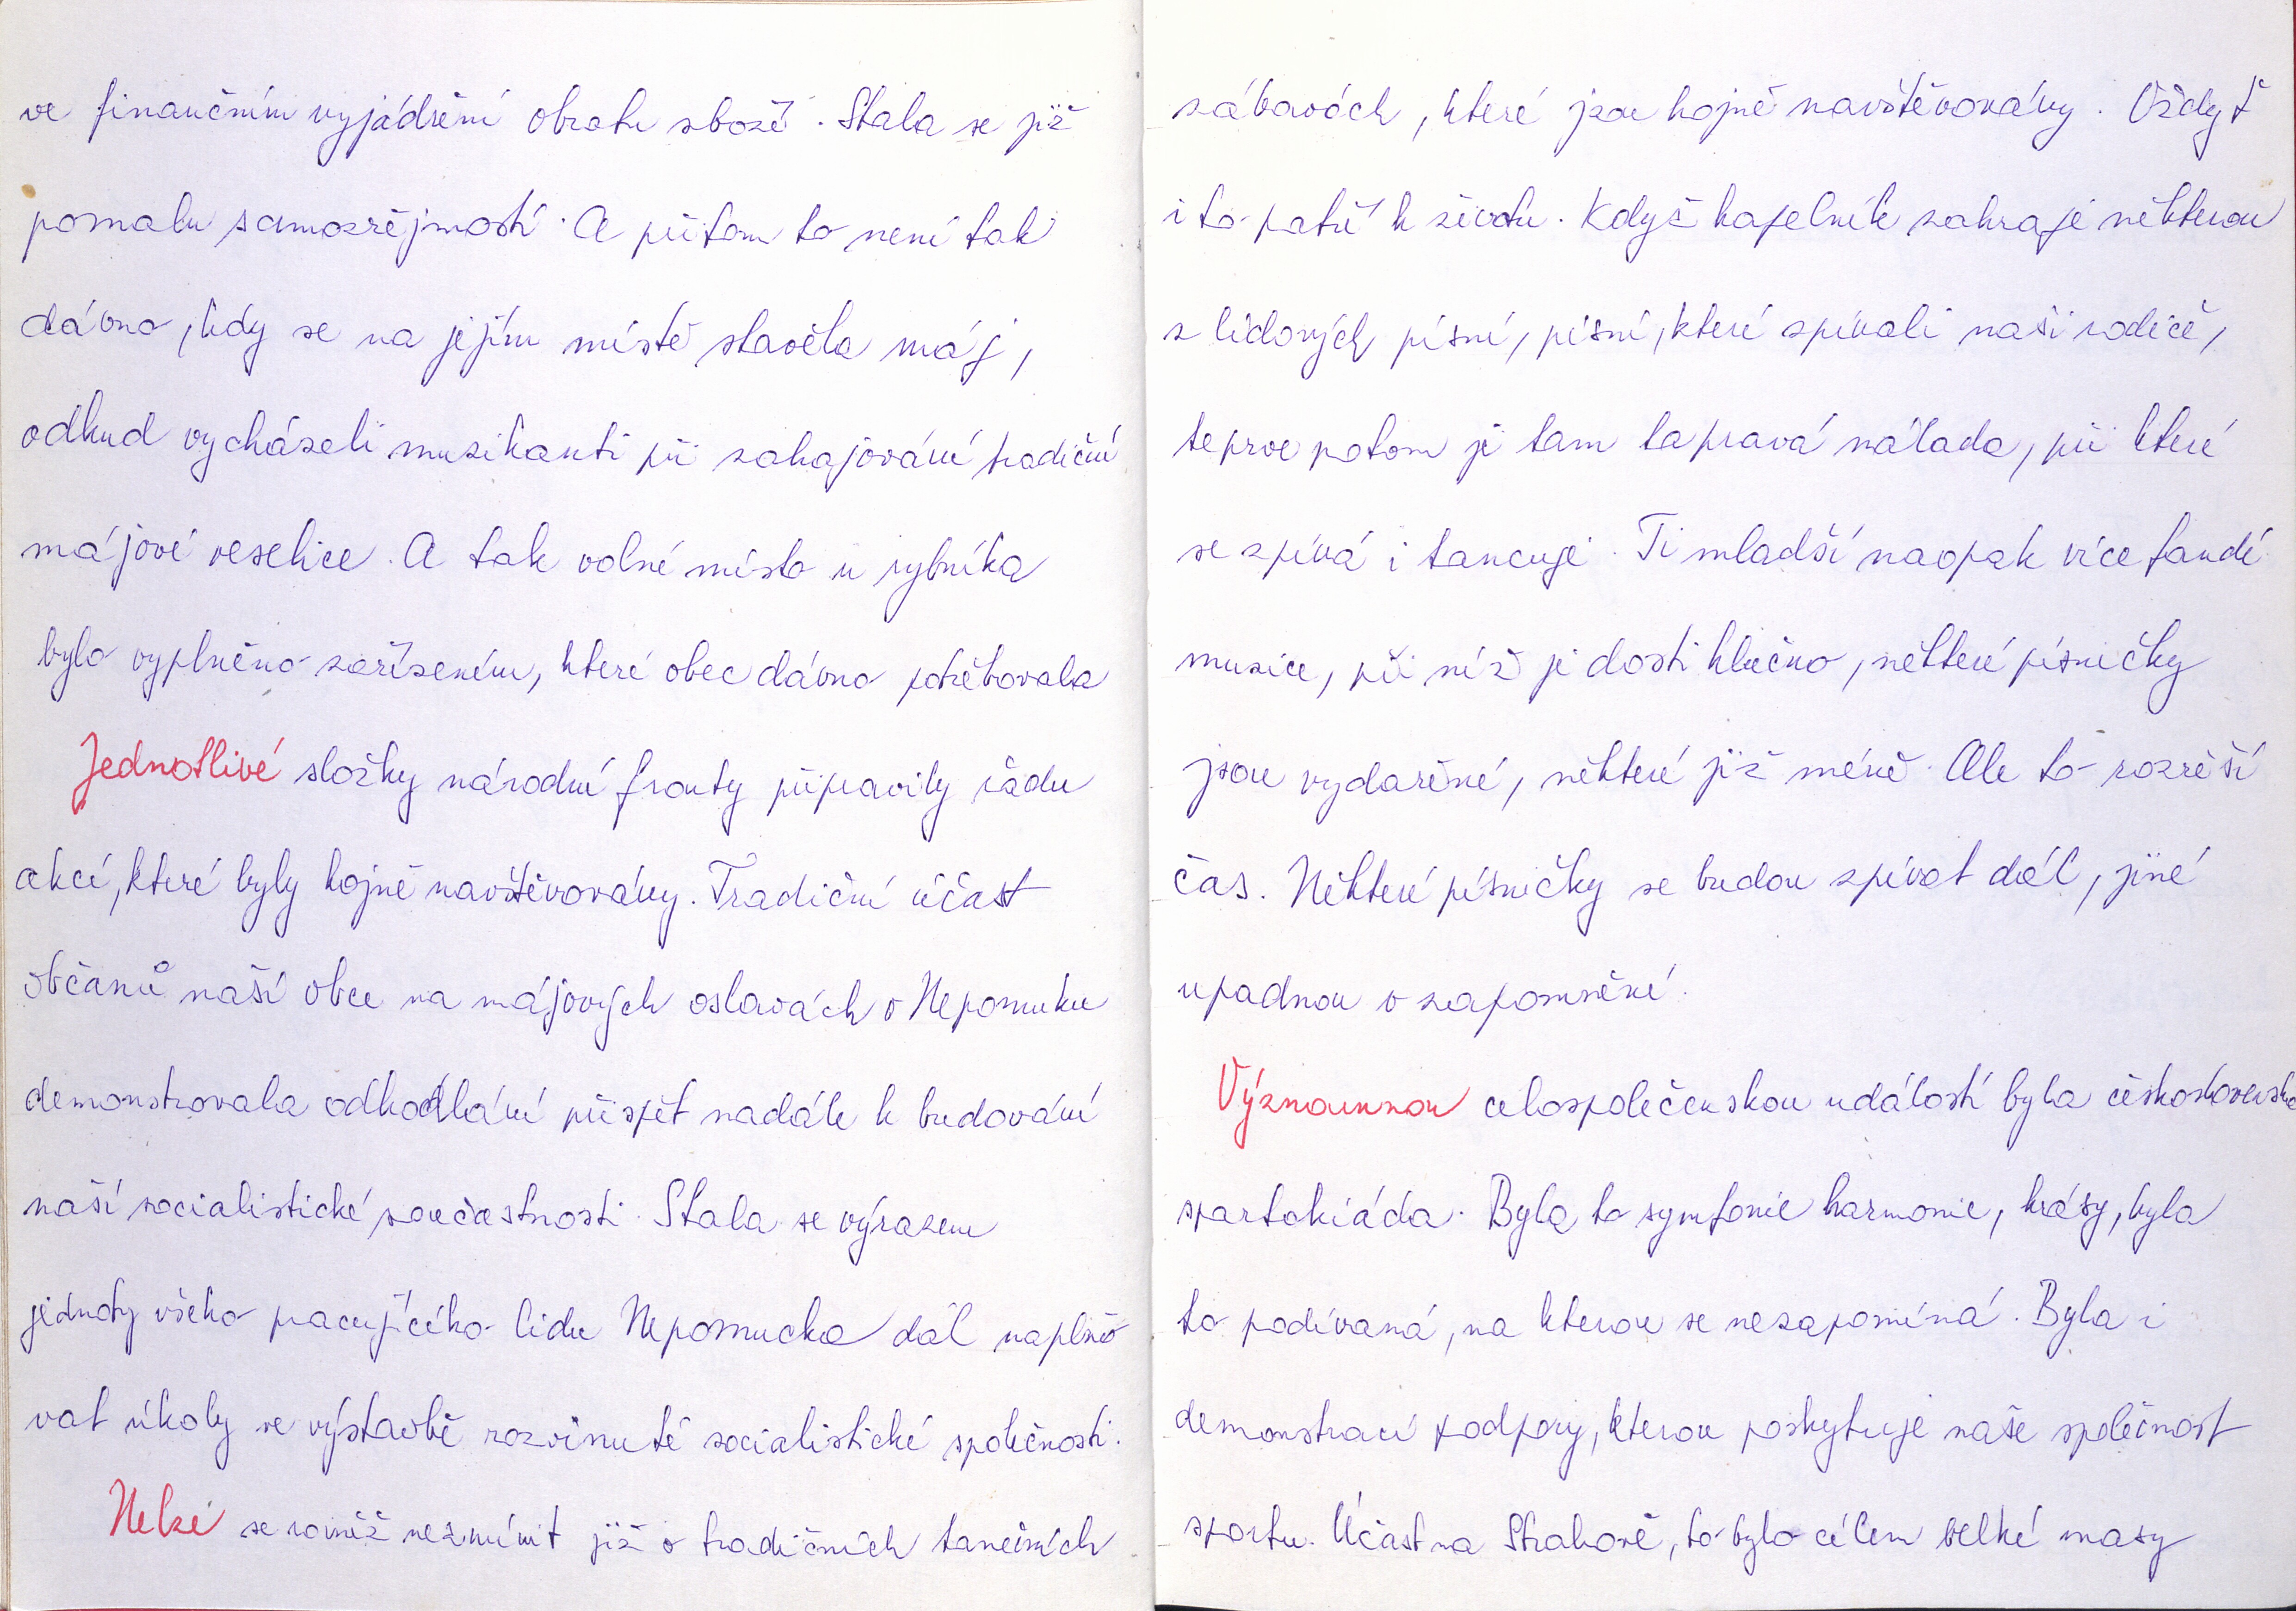 ve finančním vyjádření obratu zboží. Stala se již
pomalu samozřejmostí. A přitom to není tak
dávno, kdy se na jejím místě stavěla máj,
odkud vycházeli muzikanti při zahajování tradiční
májové veselice. A tak volné místo u rybníka
bylo vyplněno zařízením, které obec dávno potřebovala
Jednotlivé složky národní fronty připravily řadu
akcí, které byly hojně navštěvovány. Tradiční účast
občanů naší obce na májových oslavách v Nepomuku
demonstrovala odhodlání přispět nadále k budování
naší socialistické součastnosti. Stala se výrazem
jednoty všeho pracujícího lidu Nepomucka dál naplňo
vat úkoly ve výstavbě rozvinuté socialistické společnosti.
Nelze se rovněž nezmínit již o tradičních tanečních
zábavách, které jsou hojně navštěvovány. Vždyť
i to patří k životu. Když kapelník zahraje některou
z lidových písní, písní, které zpívali naši rodiče,
teprve potom je tam ta pravá nálada, při které
se zpívá i tancuje. Ti mladší naopak více fandí
muzice, při níž je dosti hlučno, některé písničky
jsou vydařené, některé již méně. Ale to rozřeší
čas. Některé písničky se budou zpívat dál, jiné
upadnou v zapomnění.
Významnou celospolečenskou událostí byla československá
spartakiáda. Byla to symfonie harmonie, krásy, byla
to podívaná, na kterou se nezapomíná. Byla i
demonstrací podpory, kterou poskytuje naše společnost
sportu. Účast na Strahově, to bylo cílem velké masy